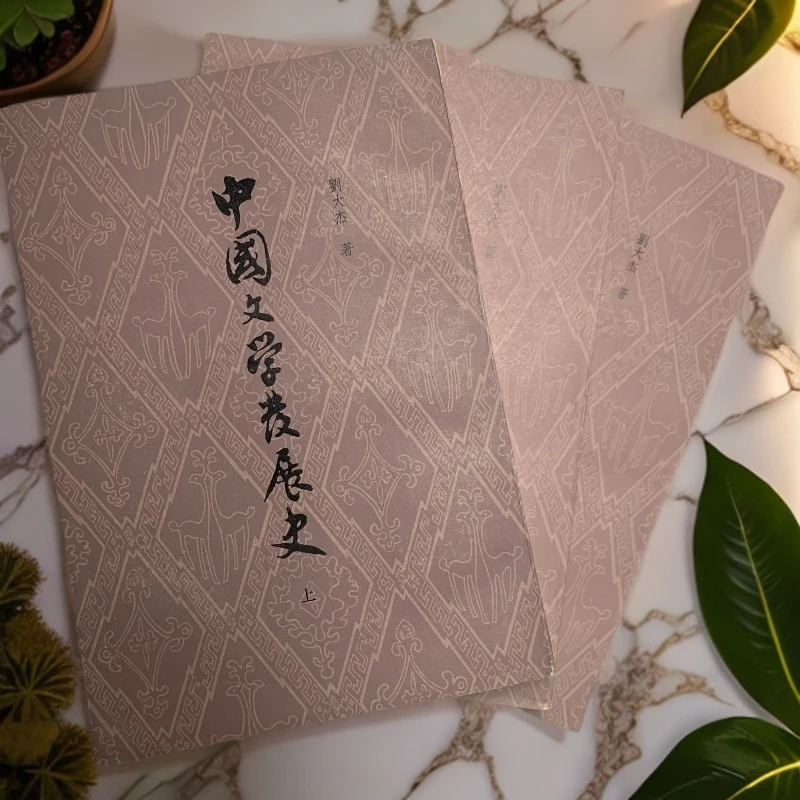 中國文学發展史
上
劉大杰 著
劉大杰 著
劉大杰 著